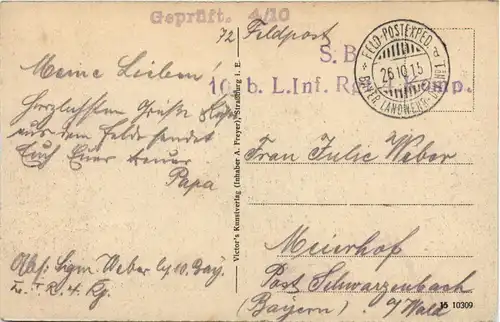 Geprüft. 4/10
72 Feldpost
S.B.
10. b. L.Inf. Rgt. Komp.
FELD-POSTEXPED. d. 1
26.10.15
BAYER. LANDWEHR-DIV.
Meine Lieben!
Herzlichsten Gruß
aus dem Felde sendet
Euch Euer treuer
Papa
Abs: Ldstm. Weber bey 10. bay.
L. I. R. 4. Kp.
Victor's Kunstverlag (Inhaber A. Freyer), Strassburg i. E.
Frau Julie Weber
Meierhof
Post Schwarzenbach
(Bayern) a/Wald
15 10309